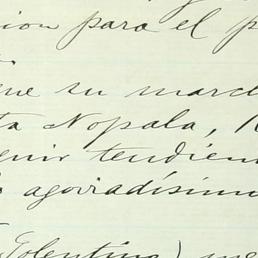 ion para el p
ue su march
ta Nopala,
guir tendien
agoiradísim
Tolentino) me